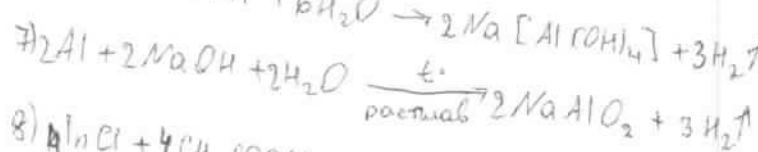 + 6H₂O → 2Na[Al(OH)₄] + 3H₂↑
7) 2Al + 2NaOH + 2H₂O t° расплав → 2NaAlO₂ + 3H₂↑
8)